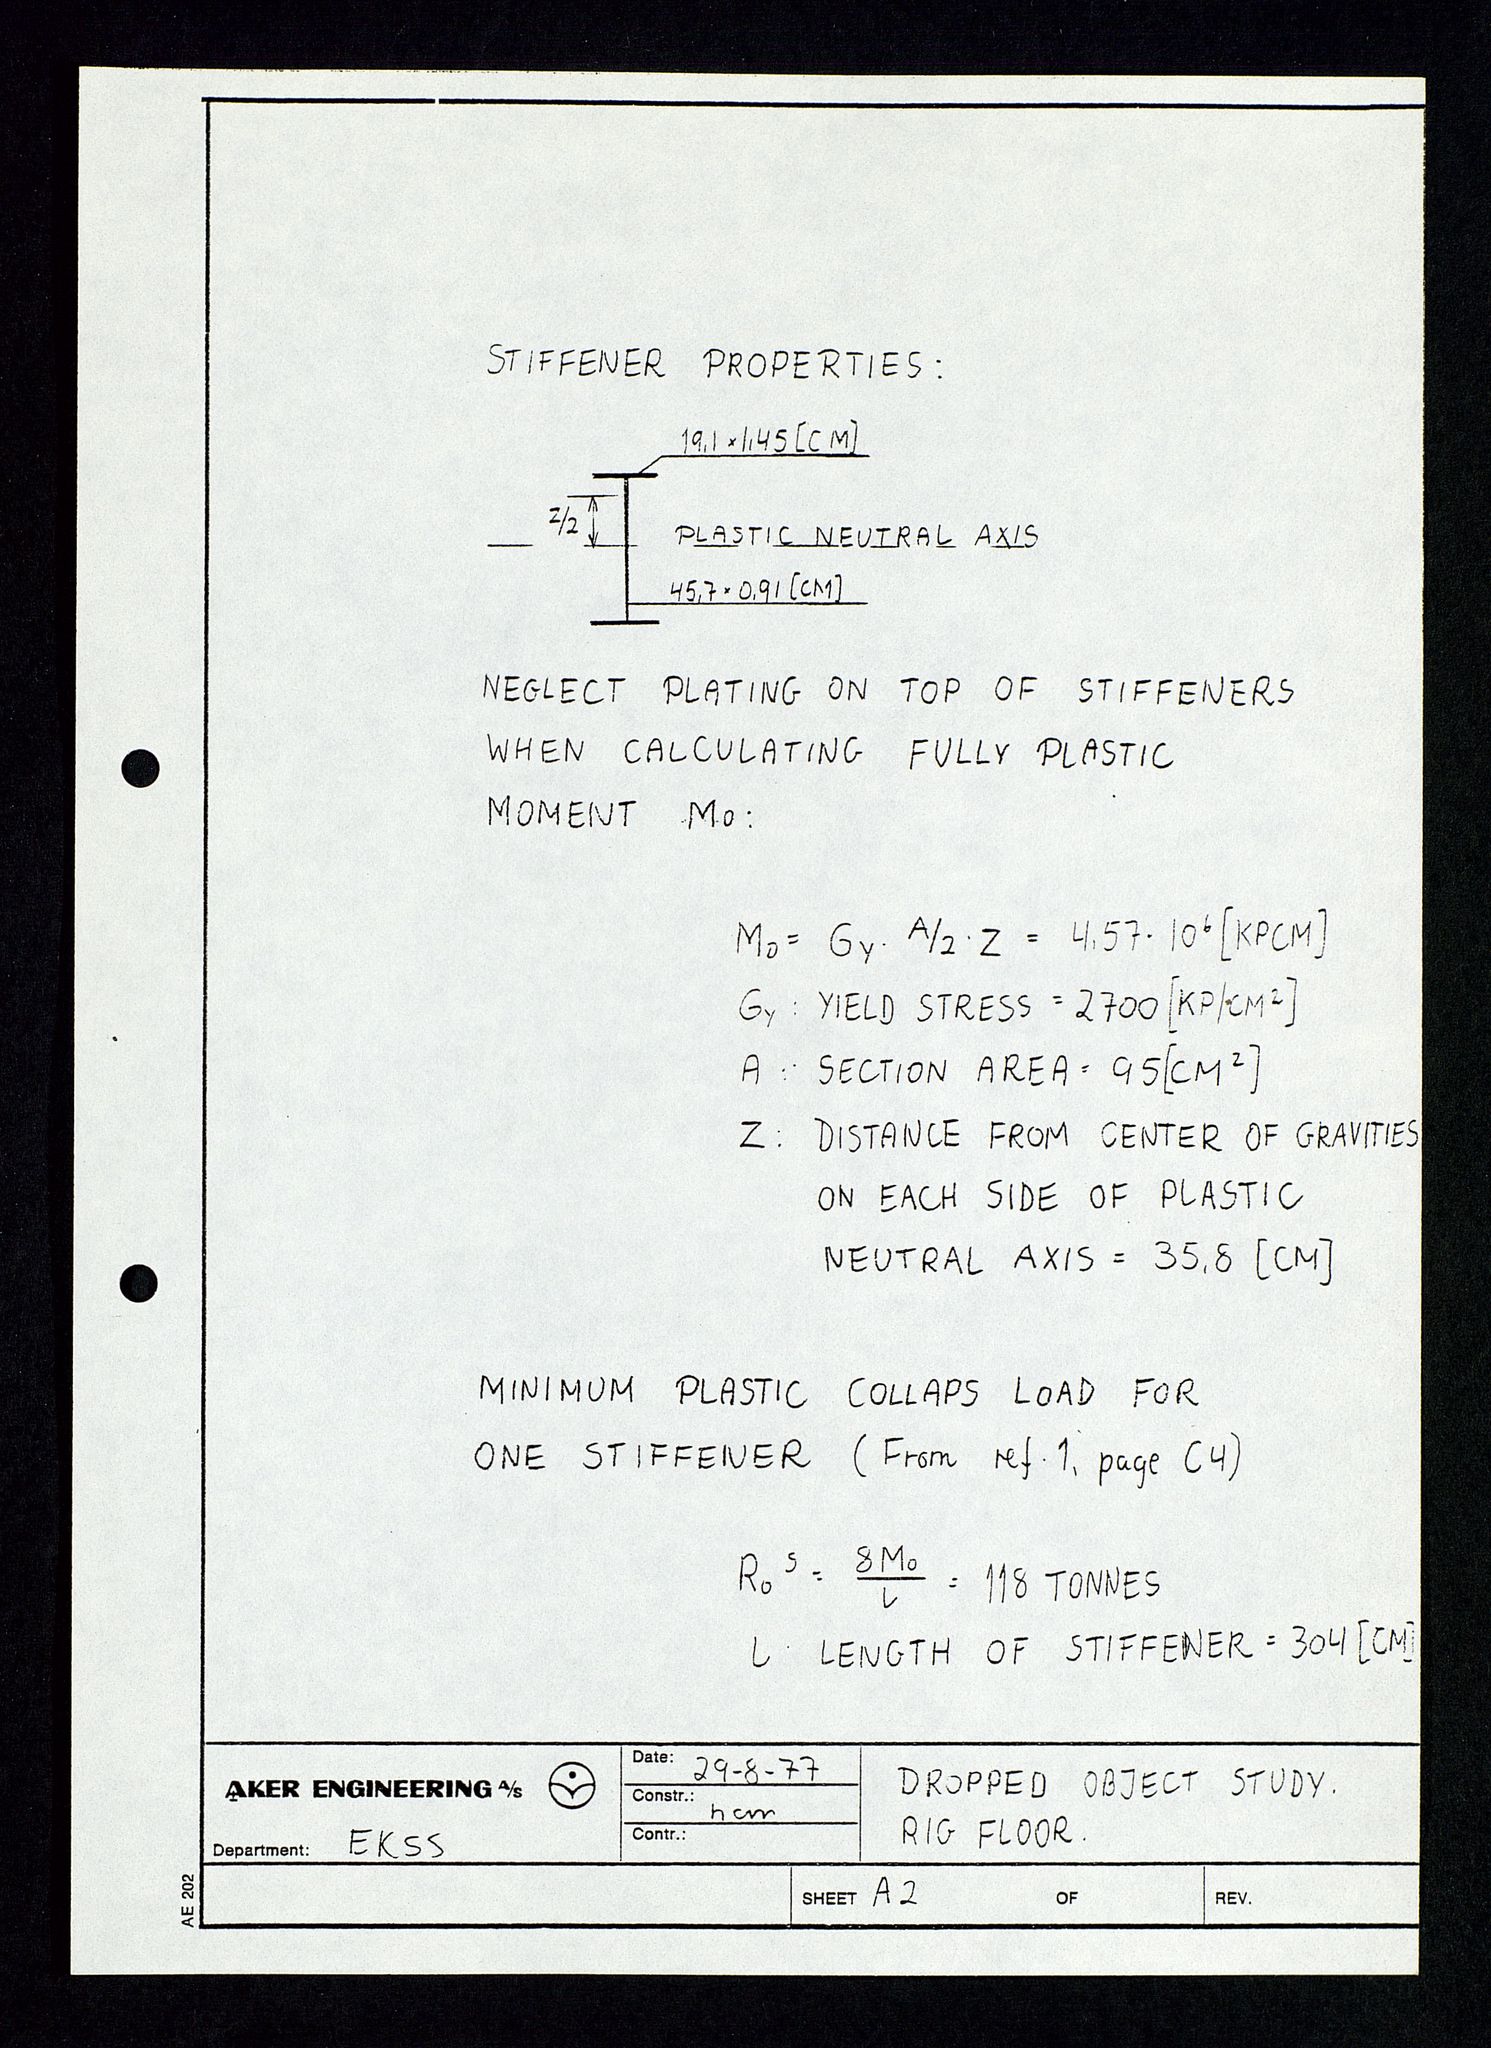 STIFFENER PROPERTIES:
19,1 × 1,45 [CM]
Z/2
PLASTIC NEUTRAL AXIS
45,7 × 0,91 [CM]
NEGLECT PLATING ON TOP OF STIFFENERS
WHEN CALCULATING FULLY PLASTIC
MOMENT Mo:
Mo = Gy · A/2 · Z = 4,57 · 10⁶ [KPCM]
Gy : YIELD STRESS = 2700 [KP/CM²]
A : SECTION AREA = 95 [CM²]
Z : DISTANCE FROM CENTER OF GRAVITIES
ON EACH SIDE OF PLASTIC
NEUTRAL AXIS = 35,8 [CM]
MINIMUM PLASTIC COLLAPS LOAD FOR
ONE STIFFENER (From ref. 1, page C4)
Ro^S = 8Mo/L = 118 TONNES
L : LENGTH OF STIFFENER = 304 [CM]
AKER ENGINEERING A/S
Department: EKSS
Date: 29-8-77
Constr.: hcm
Contr.:
DROPPED OBJECT STUDY.
RIG FLOOR.
SHEET A2 OF
REV.
AE 202